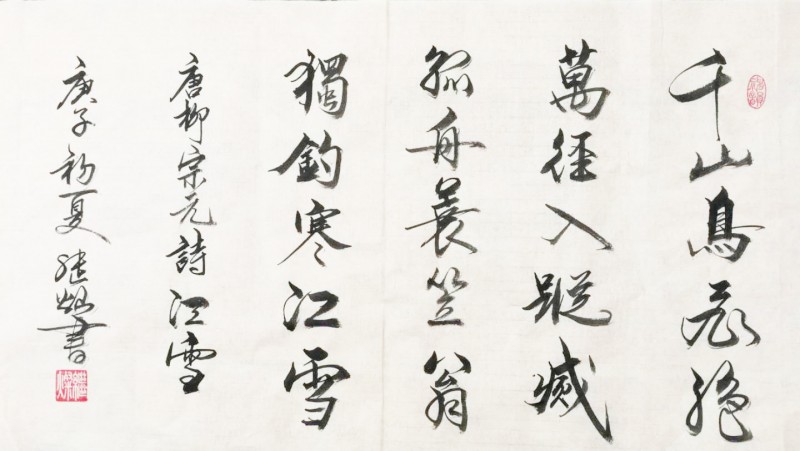 千山鳥飛絕
萬徑人蹤滅
孤舟蓑笠翁
獨釣寒江雪
唐柳宗元詩江雪
庚子初夏書